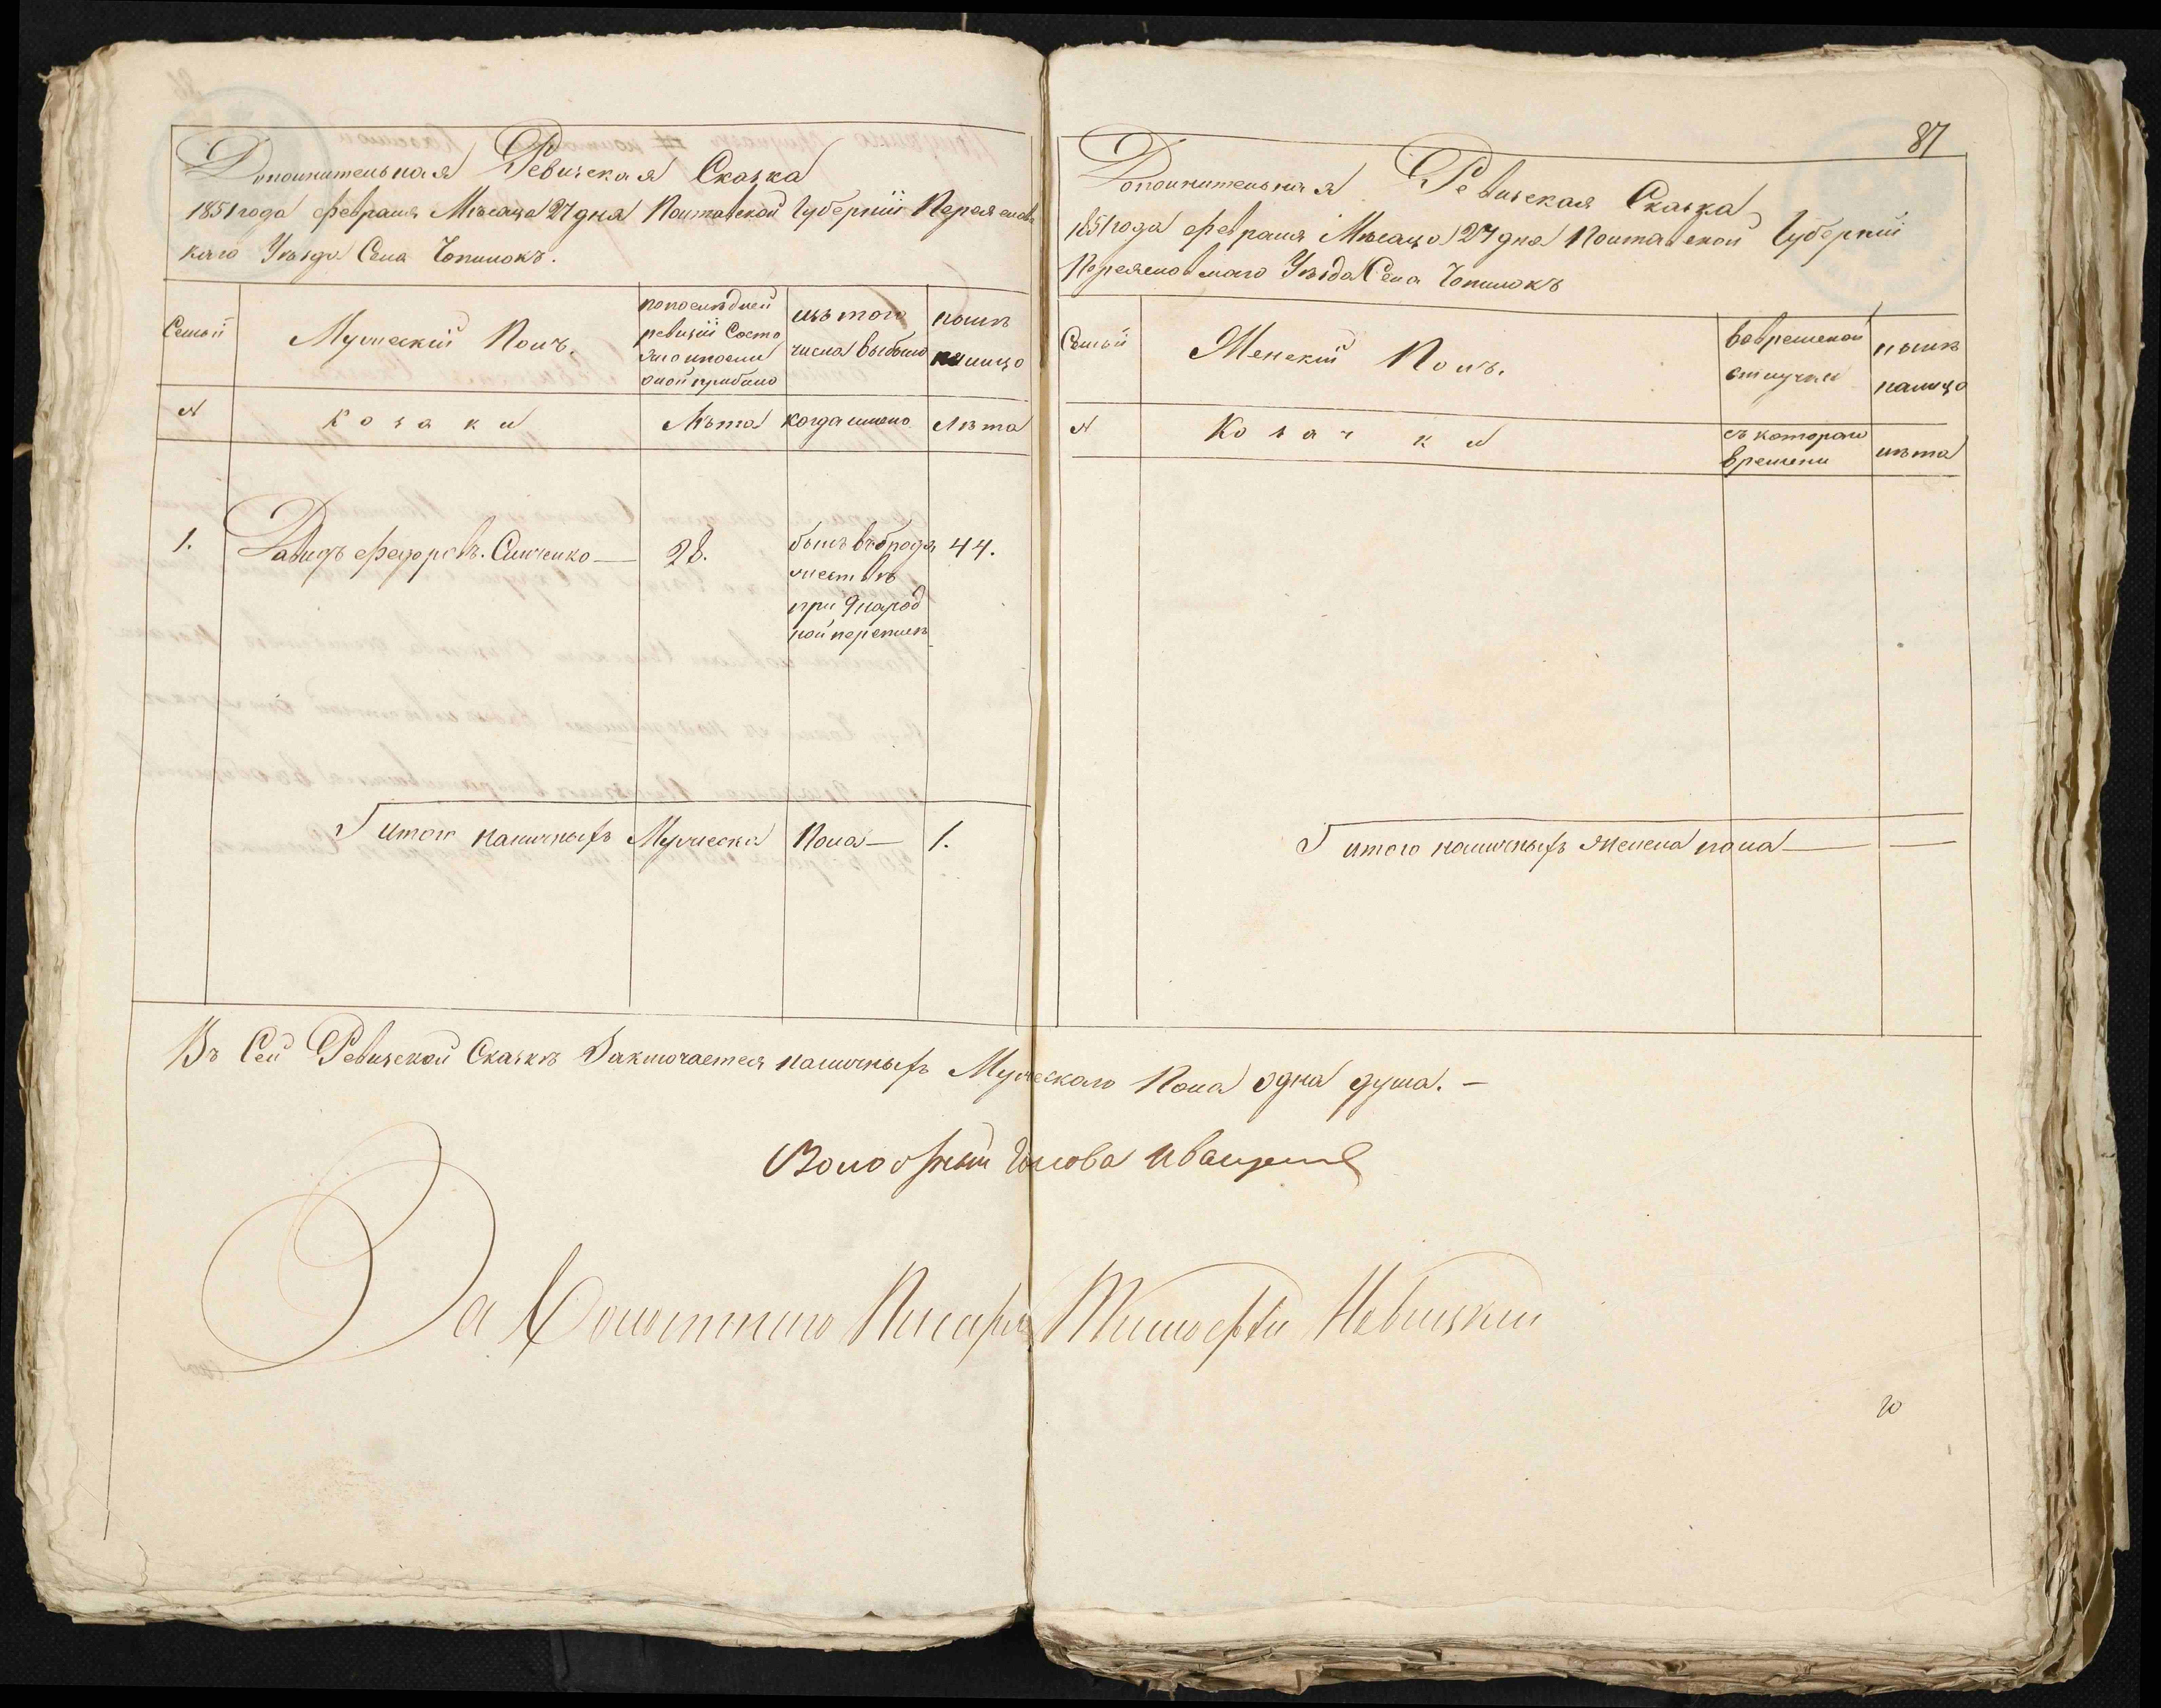 Дополнительная Ревизская Сказка
1851 года февраля Мѣсяца 27 дня Полтавской Губерніи Переяславс
каго Уѣзда Села Чопилокъ.
Семьи
Мужескій Полъ.
по послѣдней
ревизіи Состо
яло и после
оной прибыло
изъ того
числа выбыло
нынѣ
на лицо
№
козаки
Лѣта
когда имено
Лѣта
1.
Давидъ Федоровъ. Синченко —
28.
былъ въ бродя
жествѣ
при 9 народ
ной переписи
44.
Итого наличныхъ Мужеска Пола — 1.
87
Дополнительная Ревизская Сказка
1851 года февраля Мѣсяца 27 дня Полтавской Губерніи
Переяславскаго Уѣзда Села Чопилокъ
Семьи
Женскій Полъ.
во временной
отлучки
нынѣ
на лицо
№
Козачки
съ котораго
времени
лѣта
Итого наличныхъ женска пола — —
Въ Сей Ревизской Сказкѣ Заключается наличныхъ Мужескаго Пола одна душа. —
Волостный Голова
За Волостного Писаря Тимофей Новицкій